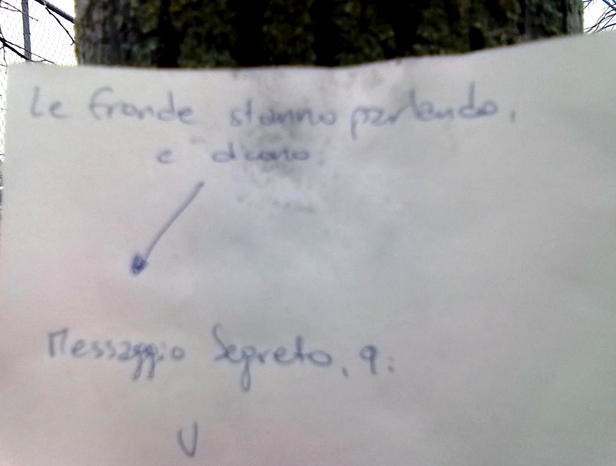 Le fronde stanno parlando,
e dicono:
Messaggio Segreto, 9:
V